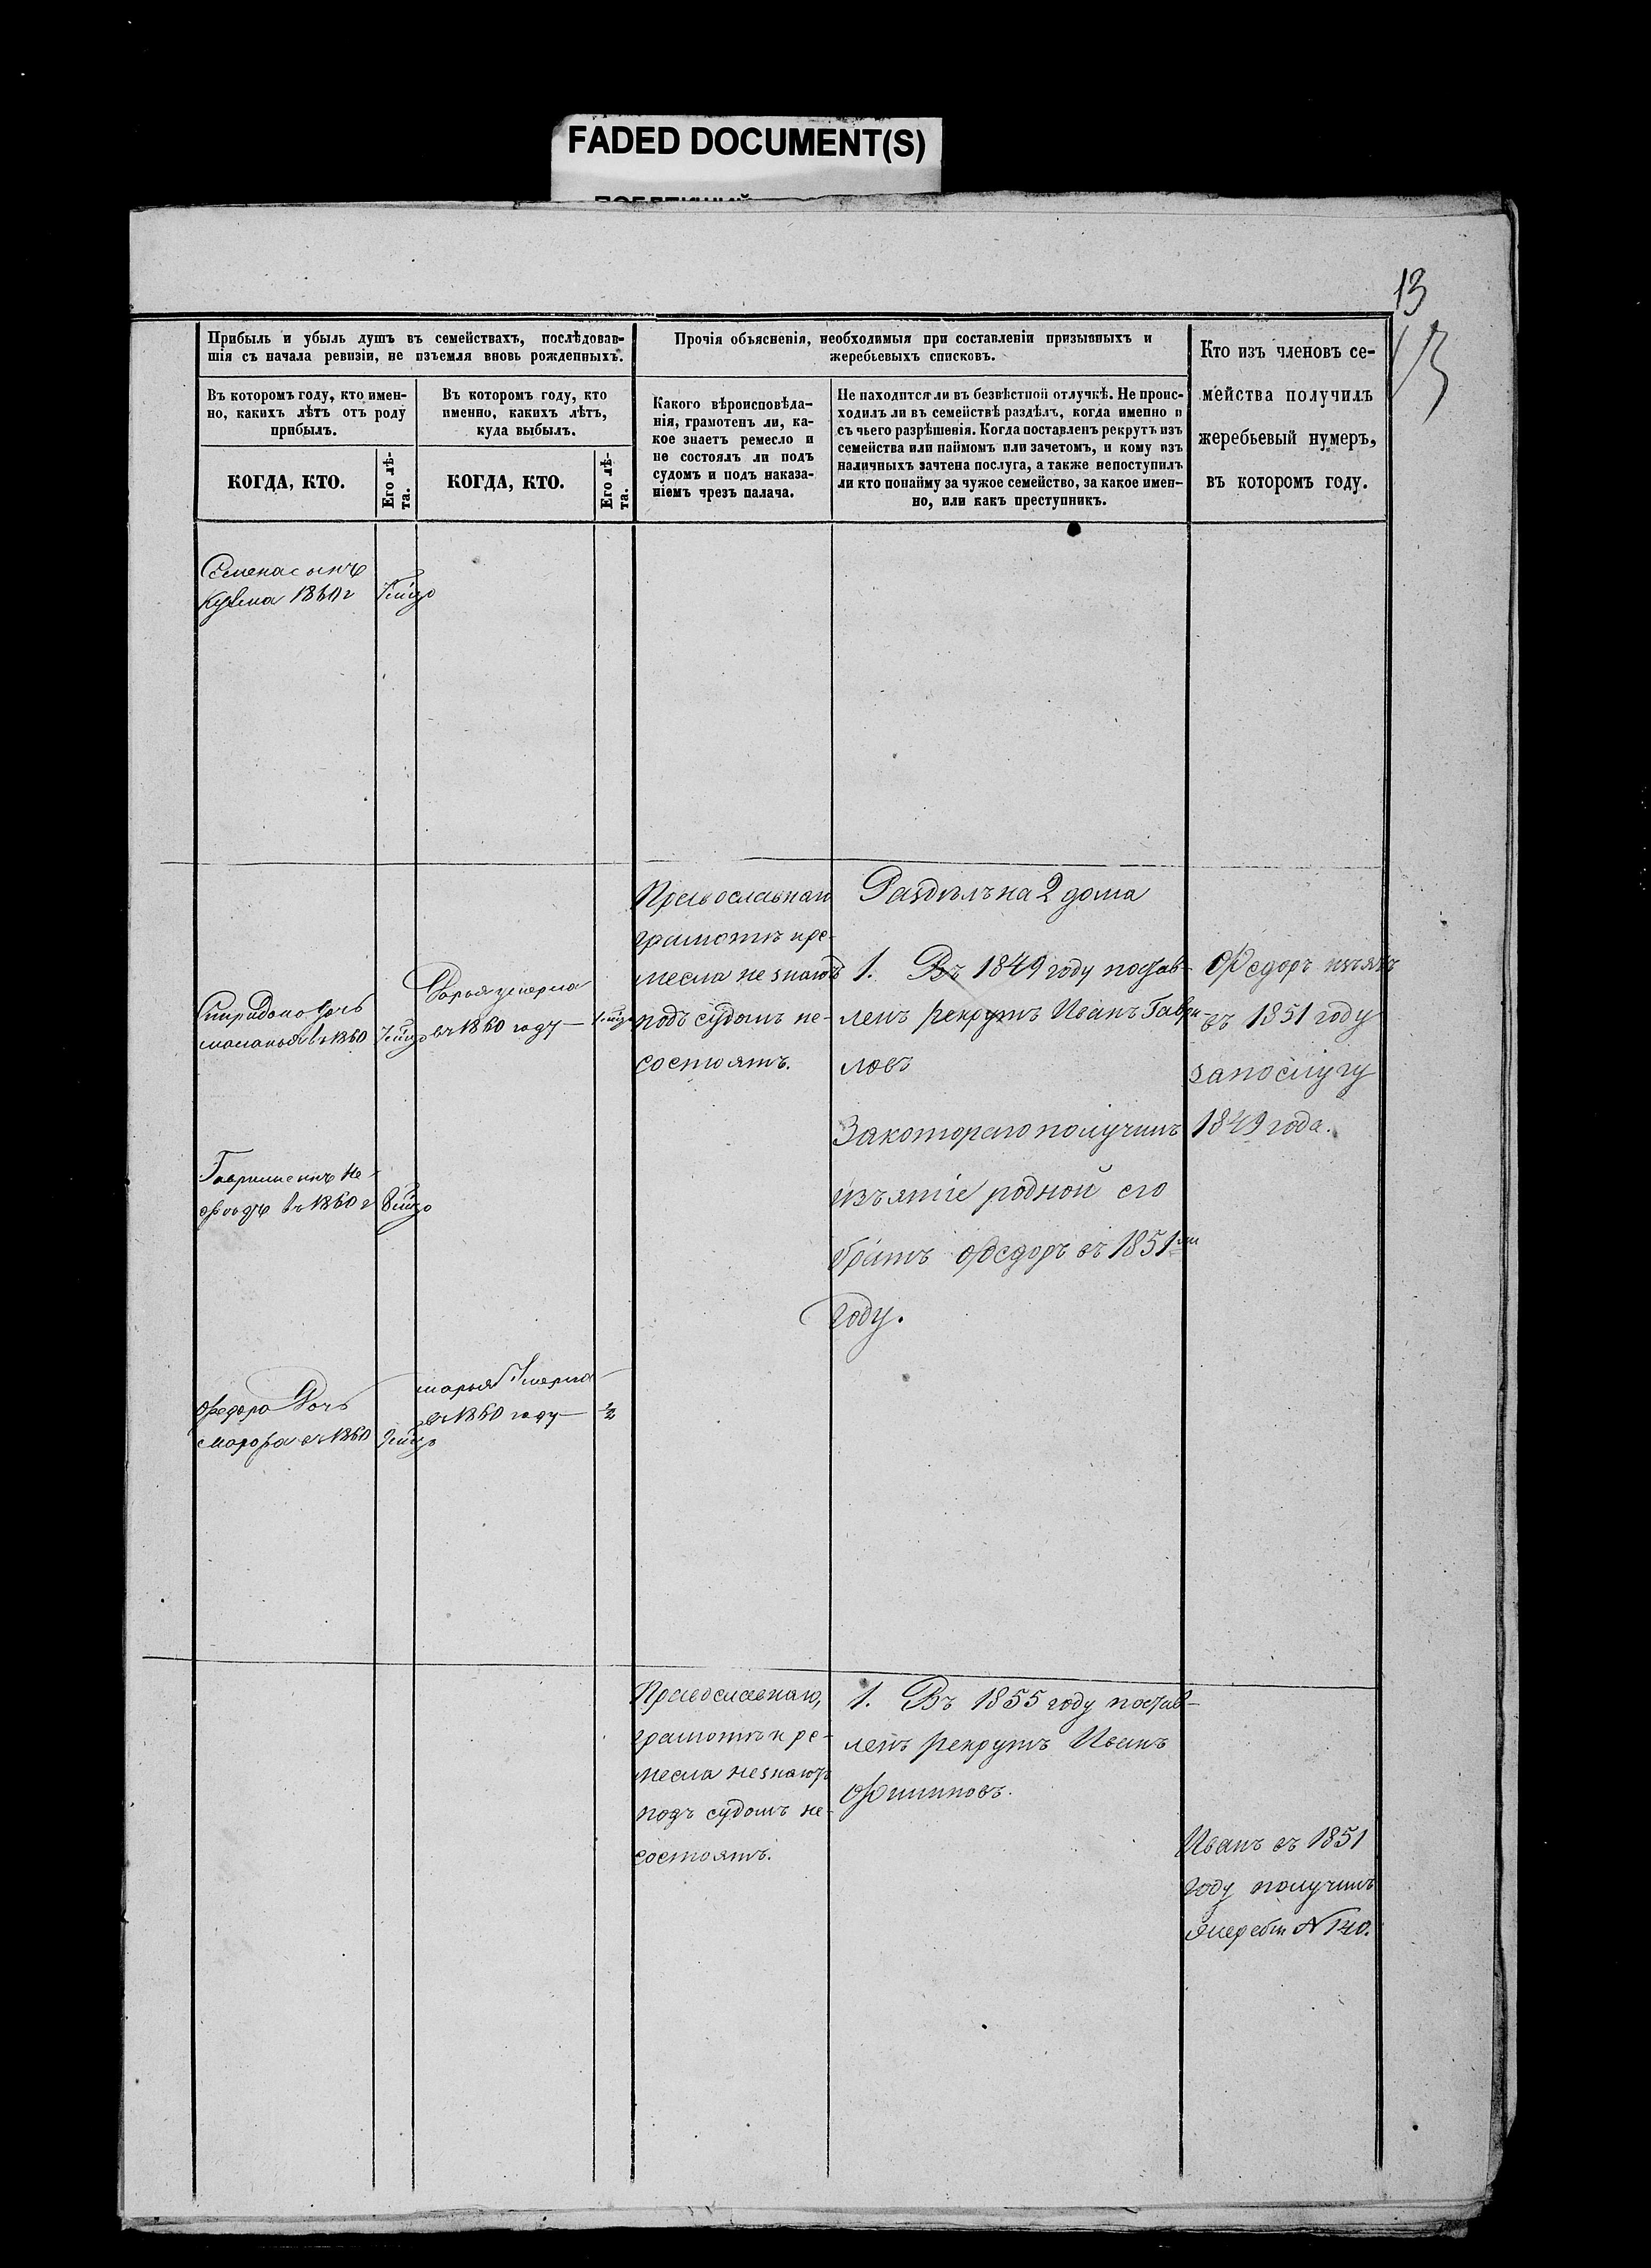 FADED DOCUMENT(S)
13
13
Прибыль и убыль душъ въ семействахъ, послѣдовав-
шія съ начала ревизіи, не изъемля вновь рожденныхъ.
Прочія объясненія, необходимыя при составленіи призывныхъ и
жеребьевыхъ списковъ.
Кто изъ членовъ се-
мейства получилъ
жеребьевый нумеръ,
въ которомъ году.
Въ которомъ году, кто имен-
но, какихъ лѣтъ отъ роду
прибылъ.
Въ которомъ году, кто
именно, какихъ лѣтъ,
куда выбылъ.
Какого вѣроисповѣда-
нія, грамотенъ ли, ка-
кое знаетъ ремесло и
не состоялъ ли подъ
судомъ и подъ наказа-
ніемъ чрезъ палача.
Не находится ли въ безвѣстной отлучкѣ. Не проис-
ходилъ ли въ семействѣ раздѣлъ, когда именно и
съ чьего разрѣшенія. Когда поставленъ рекрутъ изъ
семейства или наймомъ или зачетомъ, и кому изъ
наличныхъ зачтена послуга, а также непоступилъ
ли кто понайму за чужое семейство, за какое имен-
но, или какъ преступникъ.
КОГДА, КТО.
Его лѣ-
та.
КОГДА, КТО.
Его лѣ-
та.
Семена сынъ
Кузма 1860 г
Спиридона дочь
маланья въ 1860
Дарья умерла
въ 1860 году
Православнаго
грамотѣ и ре-
месла не знаютъ
подъ судомъ не-
состоятъ.
Раздѣлъ на 2 дома
1. Въ 1849 году постав-
ленъ рекрутъ Иванъ Гаври-
ловъ
За котораго получилъ
изъятіе родной его
братъ Ѳедоръ въ 1851мъ
году.
Ѳедоръ изъятъ
въ 1851 году
за послугу
1849 года.
Гаврилы сынъ
въ 1860 г
Ѳедора дочь
въ 1860
марья умерла
въ 1860 году
1/2
Православнаго,
грамотѣ и ре-
месла незнаютъ
подъ судомъ не-
состоятъ.
1. Въ 1855 году постав-
ленъ рекрутъ Иванъ
Ѳилиповъ.
Иванъ въ 1851
году получилъ
жеребій N 140.